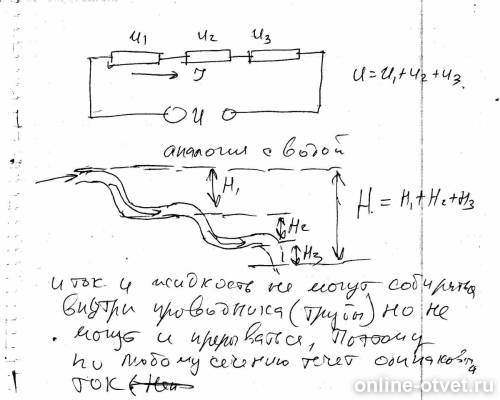 u₁ u₂ u₃
J
U
u = u₁ + u₂ + u₃
аналогия с водой
H₁
H₂
H₃
H = H₁ + H₂ + H₃
и ток и жидкость не могут собираться
внутри проводника (трубы) но не
могут и прерываться, Поэтому
по любому сечению течет одинаковый
ток (
online-otvet.ru